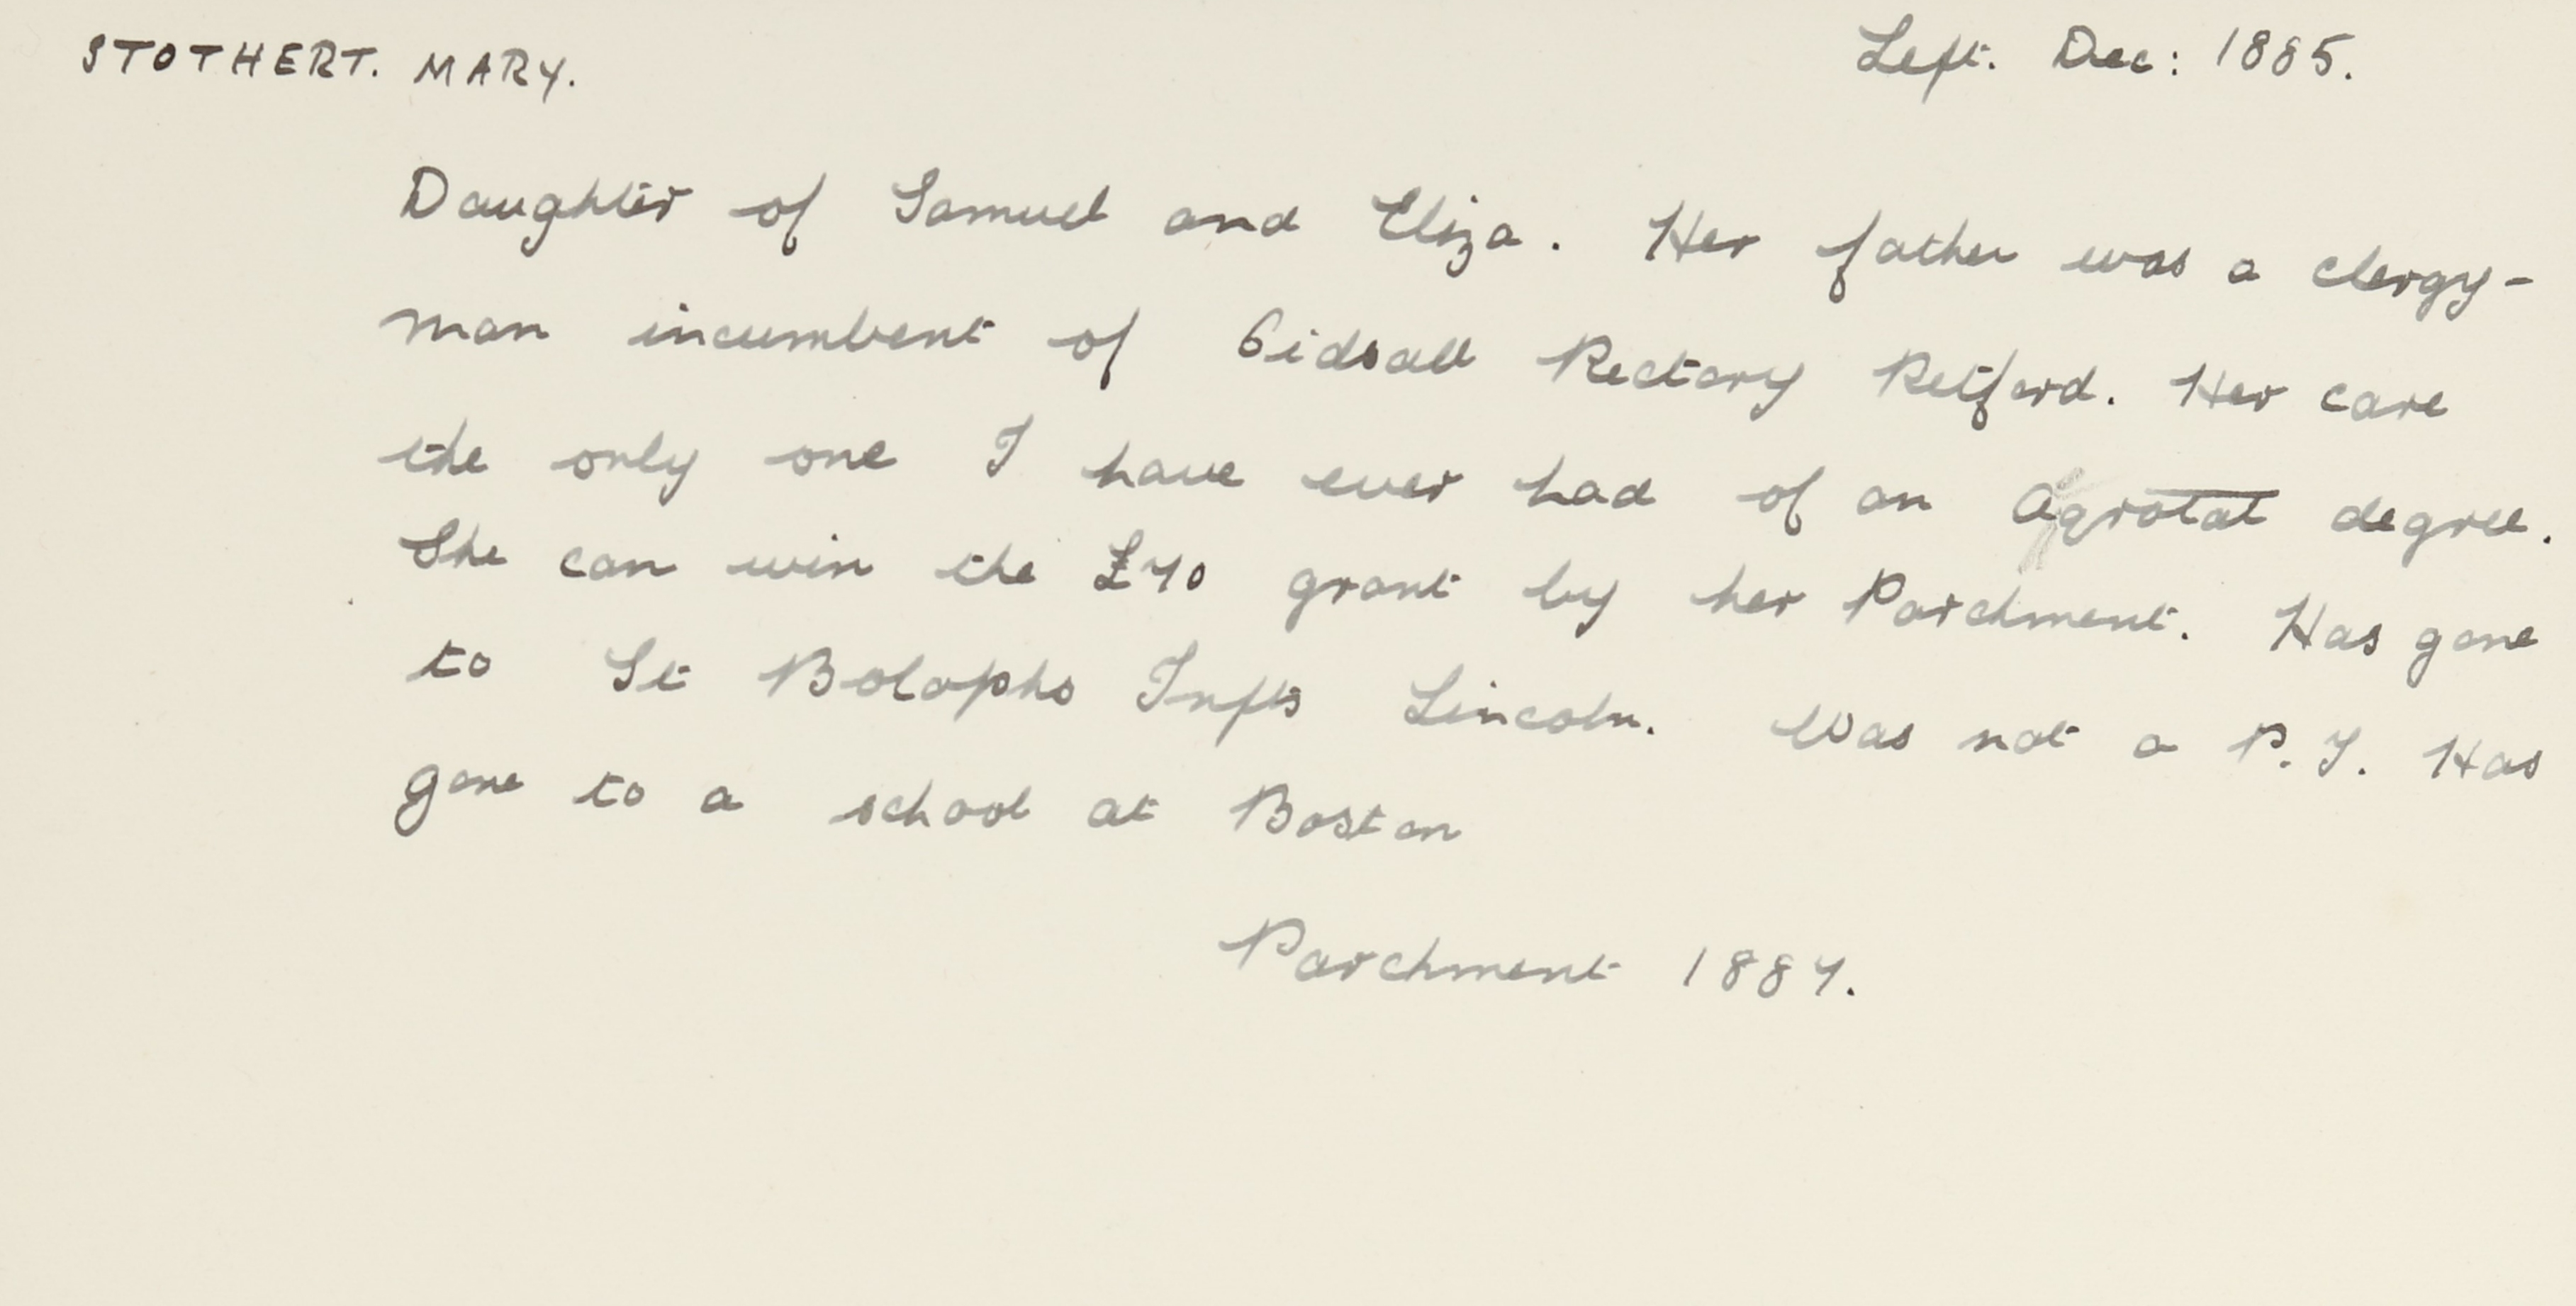 STOTHERT. MARY. Left. Dec: 1885.
Daughter of Samuel and Eliza. Her father was a clergy-
man incumbent of Gidsall Rectory Retford. Her care
the only one I have ever had of an Agrotat degree.
She can win the £70 grant by her Parchment. Has gone
to St Bolophs Infts Lincoln. Was not a P.T. Has
gone to a school at Boston
Parchment 1887.